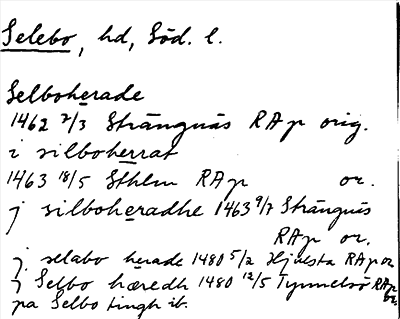 Selebo, hd, Söd. l.
Selboherade
1462 2/3 Strängnäs RAp orig.
i silboherrat
1463 18/5 Sthlm RAp or.
j silboheradhe 1463 9/7 Strängnäs
RAp or.
j selabo herade 1480 5/2 Hjulsta RAp or
j Selbo häredh 1480 12/5 Tynnelsö RAp
or.
pa Selbo tingh ib.